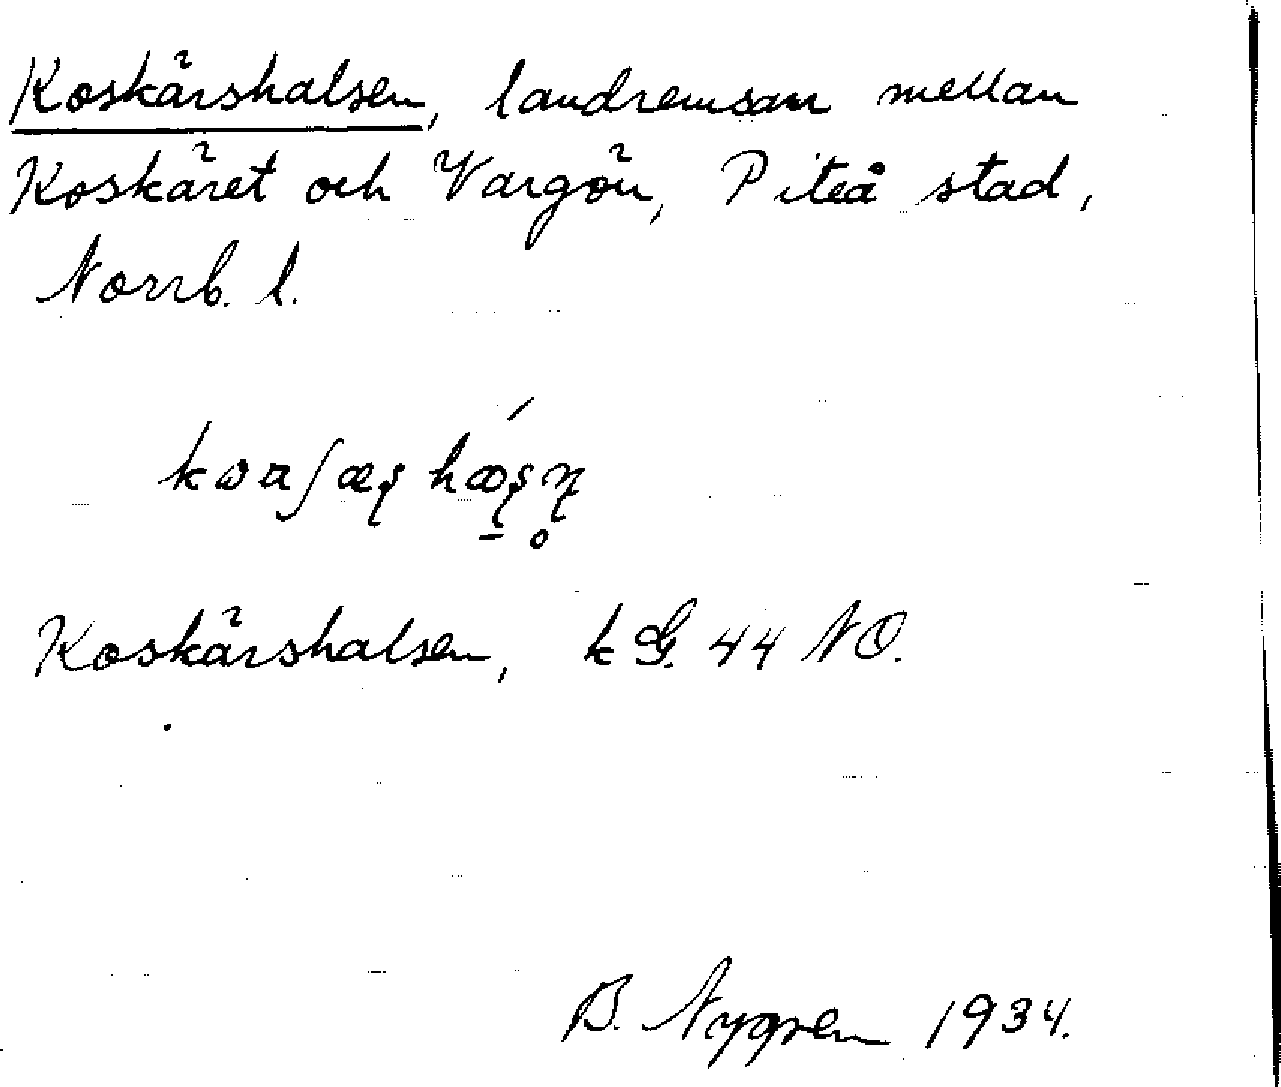 Koskärshalsen, landremsan mellan
Koskäret och Vargön, Piteå stad,
Norrb. l.
Koskärshalsen, k G. 44 NO.
B. Nygren 1934.